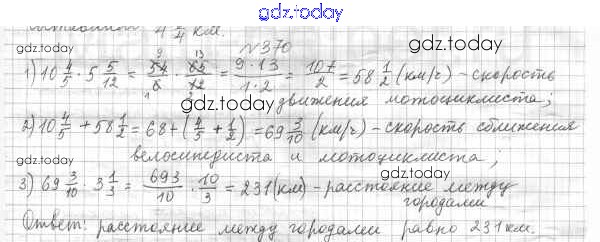 gdz.today
4 1/4 км.
gdz.today
№370
gdz.today
1) 10 4/5 · 5 5/12 = 54/5 · 65/12 = 9·13/1·2 = 107/2 = 58 1/2 (км/г) - скорость
gdz.today
движения мотоциклиста;
2) 10 4/5 + 58 1/2 = 68 + (4/5 + 1/2) = 69 3/10 (км/г) - скорость сближения
gdz.today
велосипедиста и мотоциклиста;
gdz.today
3) 69 3/10 · 3 1/3 = 693/10 · 10/3 = 231 (км) - расстояние между
городами
gdz.today
Ответ: расстояние между городами равно 231 км.